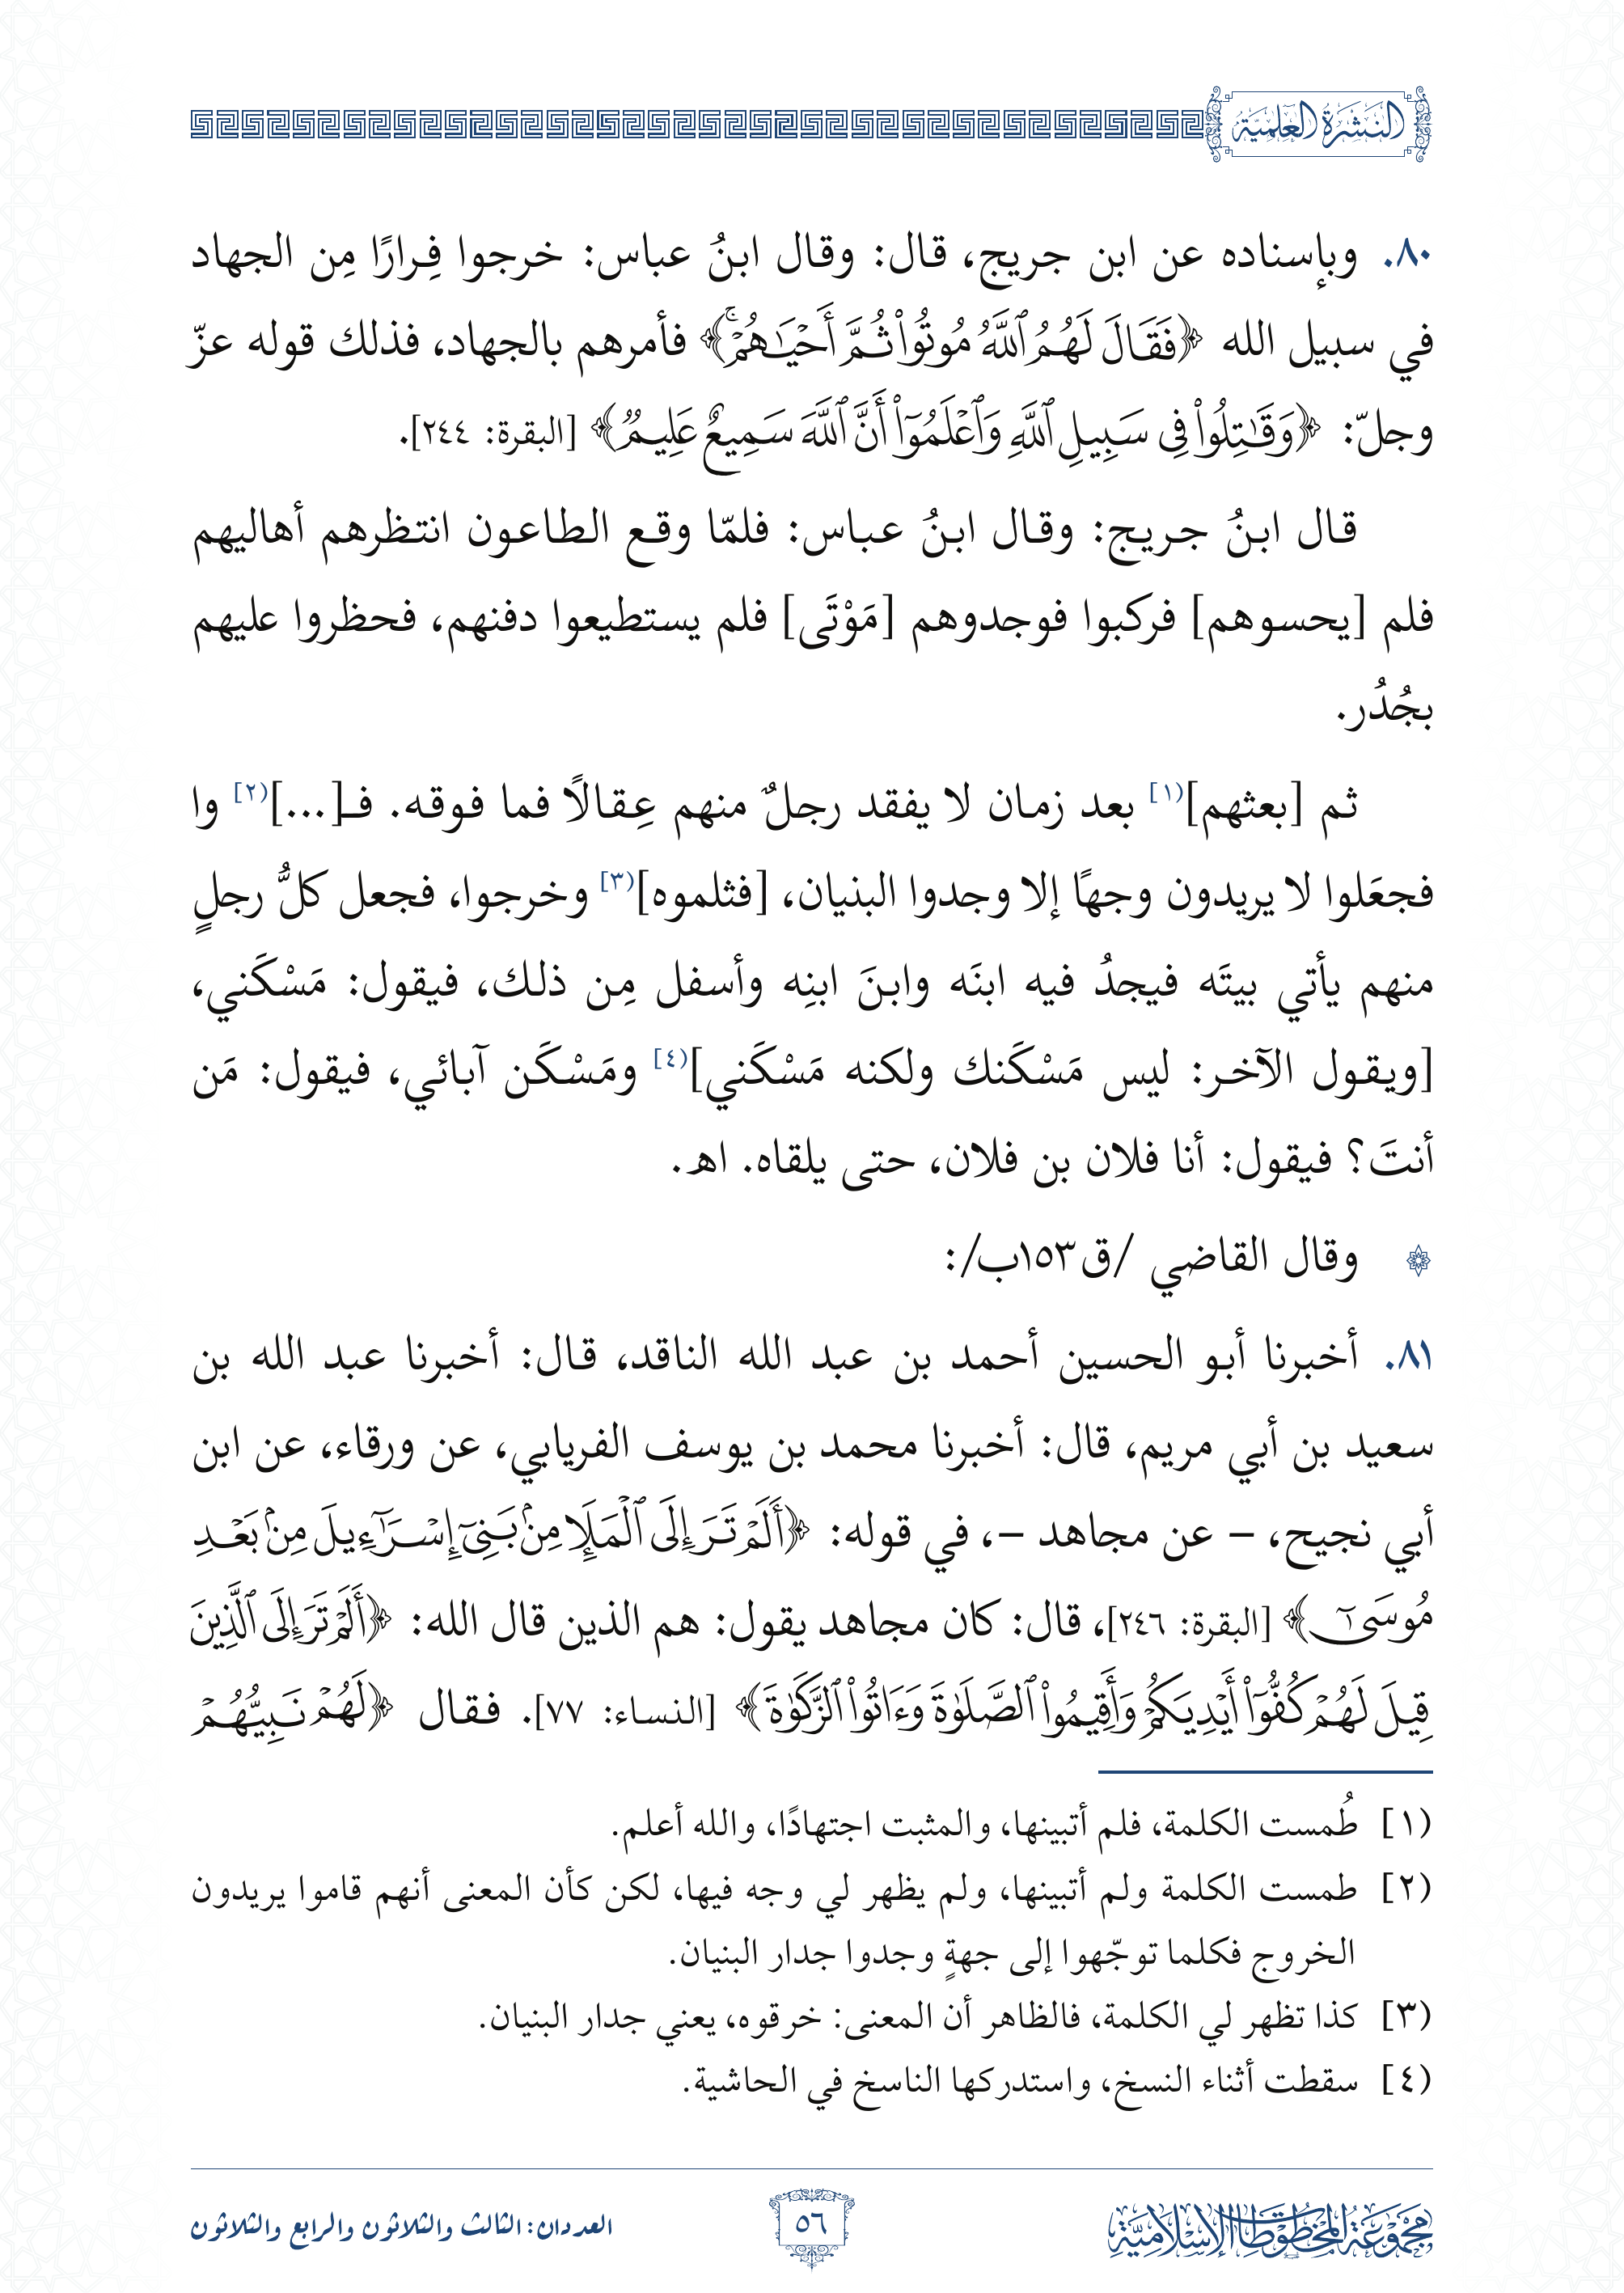 النشرة العلمية
٨٠. وبإسناده عن ابن جريج، قال: وقال ابنُ عباس: خرجوا فِرارًا مِن الجهاد
في سبيل الله ﴿فَقَالَ لَهُمُ ٱللَّهُ مُوتُوا۟ ثُمَّ أَحْيَـٰهُمْۚ﴾ فأمرهم بالجهاد، فذلك قوله عزّ
وجلّ: ﴿وَقَـٰتِلُوا۟ فِى سَبِيلِ ٱللَّهِ وَٱعْلَمُوٓا۟ أَنَّ ٱللَّهَ سَمِيعٌ عَلِيمٌ﴾ [البقرة: ٢٤٤].
قال ابنُ جريج: وقال ابنُ عباس: فلمّا وقع الطاعون انتظرهم أهاليهم
فلم [يحسوهم] فركبوا فوجدوهم [مَوْتَى] فلم يستطيعوا دفنهم، فحظروا عليهم
بجُدُر.
ثم [بعثهم](١] بعد زمان لا يفقد رجلٌ منهم عِقالًا فما فوقه. فـ[...](٢] وا
فجعَلوا لا يريدون وجهًا إلا وجدوا البنيان، [فثلموه](٣] وخرجوا، فجعل كلُّ رجلٍ
منهم يأتي بيتَه فيجدُ فيه ابنَه وابنَ ابنِه وأسفل مِن ذلك، فيقول: مَسْكَني،
[ويقول الآخر: ليس مَسْكَنك ولكنه مَسْكَني](٤] ومَسْكَن آبائي، فيقول: مَن
أنتَ؟ فيقول: أنا فلان بن فلان، حتى يلقاه. اهـ.
وقال القاضي /ق١٥٣ب/:
٨١. أخبرنا أبو الحسين أحمد بن عبد الله الناقد، قال: أخبرنا عبد الله بن
سعيد بن أبي مريم، قال: أخبرنا محمد بن يوسف الفريابي، عن ورقاء، عن ابن
أبي نجيح، – عن مجاهد –، في قوله: ﴿أَلَمْ تَرَ إِلَى ٱلْمَلَإِ مِنۢ بَنِىٓ إِسْرَٰٓءِيلَ مِنۢ بَعْدِ
مُوسَىٰٓ﴾ [البقرة: ٢٤٦]، قال: كان مجاهد يقول: هم الذين قال الله: ﴿أَلَمْ تَرَ إِلَى ٱلَّذِينَ
قِيلَ لَهُمْ كُفُّوٓا۟ أَيْدِيَكُمْ وَأَقِيمُوا۟ ٱلصَّلَوٰةَ وَءَاتُوا۟ ٱلزَّكَوٰةَ﴾ [النساء: ٧٧]. فقال ﴿لَهُمْ نَبِيُّهُمْ
(١] طُمست الكلمة، فلم أتبينها، والمثبت اجتهادًا، والله أعلم.
(٢] طمست الكلمة ولم أتبينها، ولم يظهر لي وجه فيها، لكن كأن المعنى أنهم قاموا يريدون
الخروج فكلما توجّهوا إلى جهةٍ وجدوا جدار البنيان.
(٣] كذا تظهر لي الكلمة، فالظاهر أن المعنى: خرقوه، يعني جدار البنيان.
(٤] سقطت أثناء النسخ، واستدركها الناسخ في الحاشية.
مجموعة المخطوطات الإسلامية
٥٦
العددان: الثالث والثلاثون والرابع والثلاثون